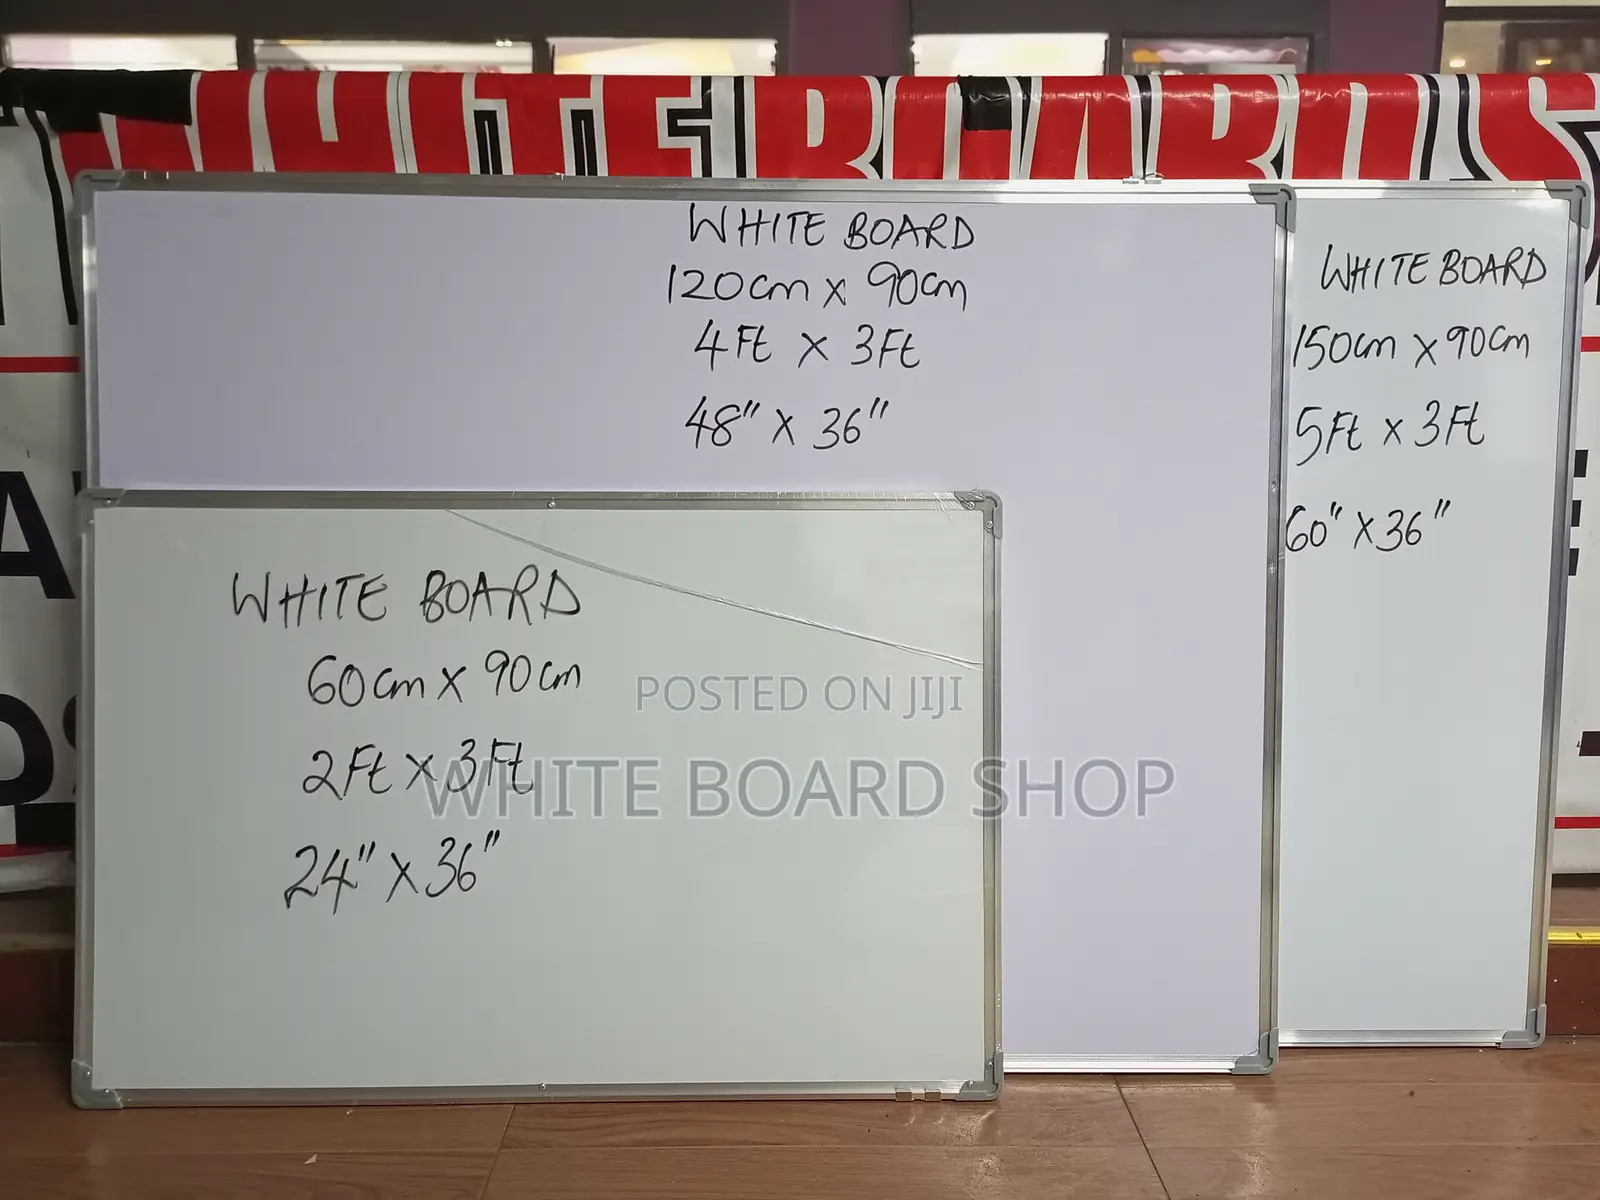 WHITE BOARDS
WHITE BOARD
120cm x 90cm
4Ft x 3Ft
48" x 36"
WHITE BOARD
150cm x 90cm
5Ft x 3Ft
60" x 36"
WHITE BOARD
60cm x 90cm
2Ft x 3Ft
24" x 36"
POSTED ON JIJI
WHITE BOARD SHOP